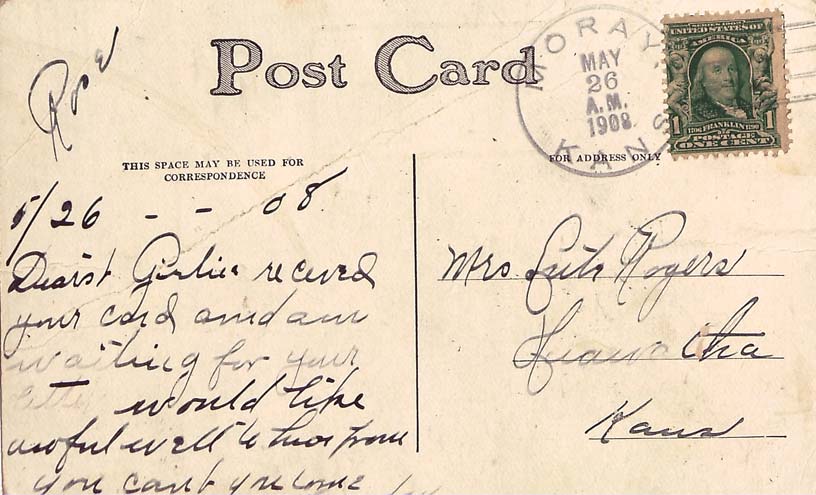 Rose
Post Card
MORAY
MAY
26
A.M.
1908
KANS
SERIES 1902
UNITED STATES OF
AMERICA
1706 FRANKLIN 1790
1 1
POSTAGE
ONE CENT
THIS SPACE MAY BE USED FOR
CORRESPONDENCE
FOR ADDRESS ONLY
5/26 - - 08
Dearst Girlie receved
your card and am
waiting for your
letter would like
awful well to hear from
you cant you come
Mrs Rogers
Hiawatha
Kans